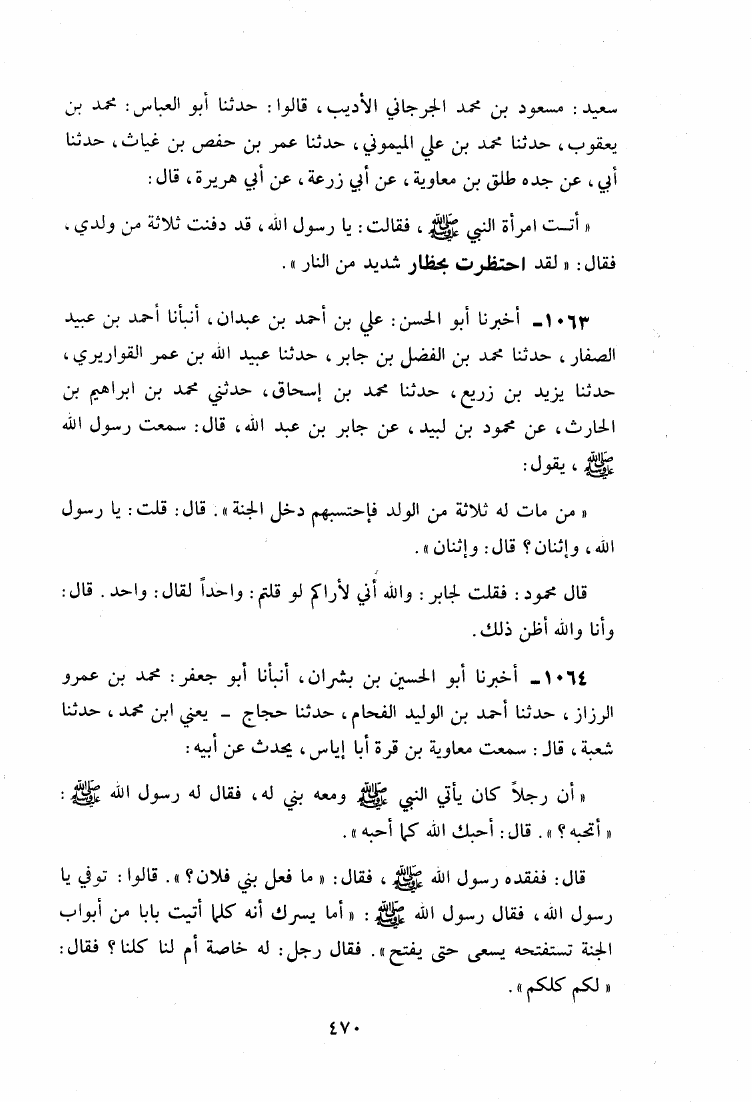 سعيد: مسعود بن محمد الجرجاني الأديب، قالوا: حدثنا أبو العباس: محمد بن
يعقوب، حدثنا محمد بن علي الميموني، حدثنا عمر بن حفص بن غياث، حدثنا
أبي، عن جده طلق بن معاوية، عن أبي زرعة، عن أبي هريرة، قال:
« أتت امرأة النبي ﷺ، فقالت: يا رسول الله، قد دفنت ثلاثة من ولدي،
فقال: « لقد احتظرت بحظار شديد من النار ».
١٠٦٣ـ أخبرنا أبو الحسن: علي بن أحمد بن عبدان، أنبأنا أحمد بن عبيد
الصفار، حدثنا محمد بن الفضل بن جابر، حدثنا عبيد الله بن عمر القواريري،
حدثنا يزيد بن زريع، حدثنا محمد بن إسحاق، حدثني محمد بن ابراهيم بن
الحارث، عن محمود بن لبيد، عن جابر بن عبد الله، قال: سمعت رسول الله
ﷺ، يقول:
« من مات له ثلاثة من الولد فإحتسبهم دخل الجنة ». قال: قلت: يا رسول
الله، وإثنان؟ قال: وإثنان ».
قال محمود: فقلت لجابر: والله أني لأراكم لو قلتم: واحداً لقال: واحد. قال:
وأنا والله أظن ذلك.
١٠٦٤ـ أخبرنا أبو الحسين بن بشران، أنبأنا أبو جعفر: محمد بن عمرو
الرزاز، حدثنا أحمد بن الوليد الفحام، حدثنا حجاج ـ يعني ابن محمد، حدثنا
شعبة، قال: سمعت معاوية بن قرة أبا إياس، يحدث عن أبيه:
« أن رجلاً كان يأتي النبي ﷺ ومعه بني له، فقال له رسول الله ﷺ:
« أتحبه؟ ». قال: أحبك الله كما أحبه ».
قال: ففقده رسول الله ﷺ، فقال: « ما فعل بني فلان؟ ». قالوا: توفي يا
رسول الله، فقال رسول الله ﷺ: « أما يسرك أنه كلما أتيت بابا من أبواب
الجنة تستفتحه يسعى حتى يفتح ». فقال رجل: له خاصة أم لنا كلنا؟ فقال:
« لكم كلكم ».
٤٧٠